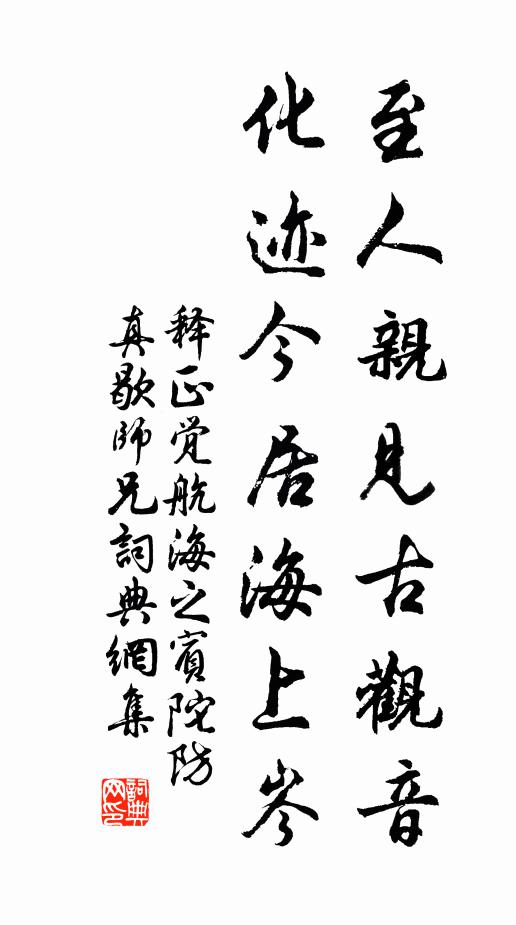 至人親見古觀音
化迹今居海上岑
释正觉航海之賓陀防
真歇師兄詞典網集
詞典
网印